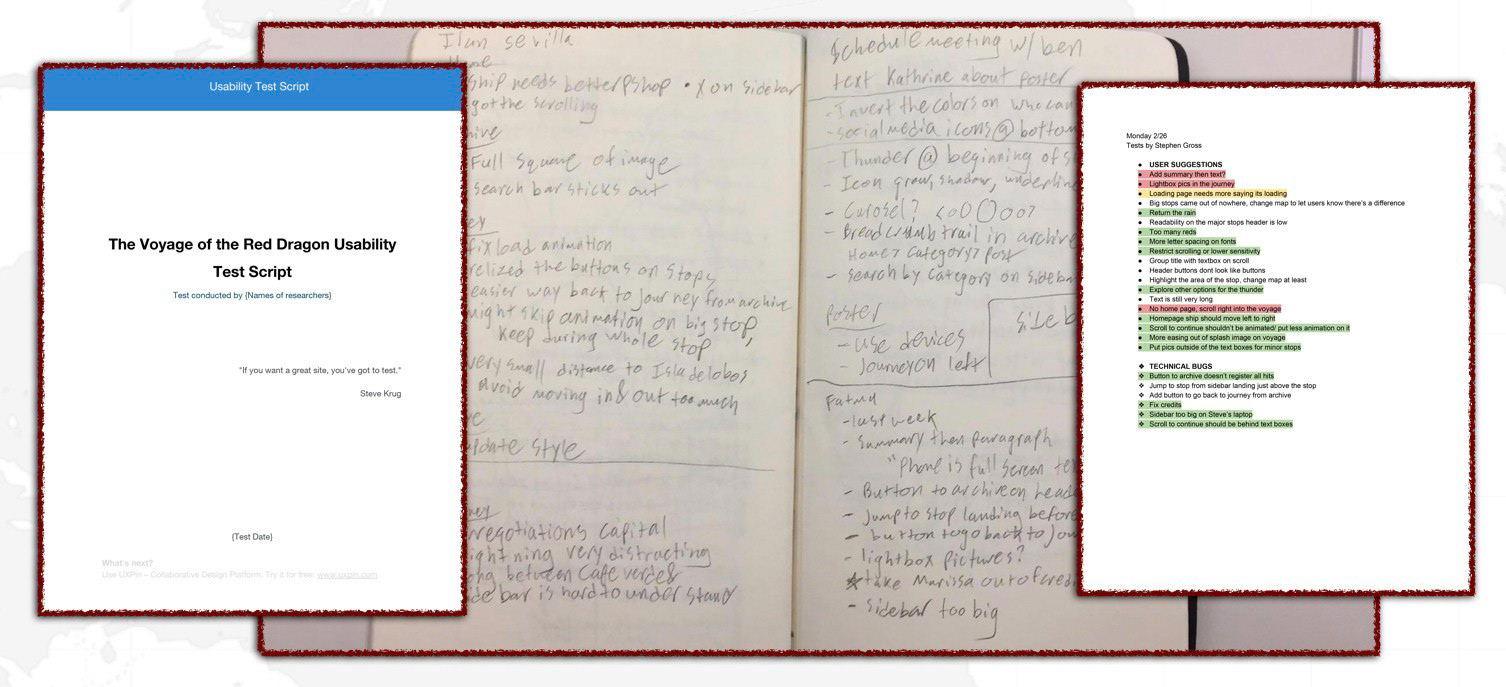 Usability Test Script
The Voyage of the Red Dragon Usability
Test Script
Test conducted by {Names of researchers}
"If you want a great site, you've got to test."
Steve Krug
{Test Date}
What's next?
Use UXPin – Collaborative Design Platform. Try it for free: www.uxpin.com
Ilan sevilla
Home
ship needs better pshop • X on sidebar
got the scrolling
hive
Full square of image
search bar sticks out
ey
fix load animation
relized the buttons on stops,
easier way back to Journey from archive
might skip animation on big stop,
keep during whole stop
very small distance to Isla de lobos
avoid moving in & out too much
pdate style
ney
negotiations capital
ightning very distracting
ong between Cafe verde &
ide bar is hard to understand
Schedule meeting w/ ben
text Kathrine about poster
- Invert the colors on who can
- social media icons @ bottom
- Thunder @ beginning of s
- Icon grow, shadow, underline
- Curosel? <oO()Oo>
- Breadcrumb trail in archive
Home > Category > post
- search by category on sideba
Poster
- use devices
- Journey on left
side b
Fatma
- last week
- summary then paragraph
"Phone is full screen te
- Button to archive on heade
- Jump to stop landing before
- button to go back to Jou
- lightbox pictures?
* take Marissa out of credi
- sidebar too big
Monday 2/26
Tests by Stephen Gross
● USER SUGGESTIONS
● Add summary then text?
● Lightbox pics in the journey
● Loading page needs more saying its loading
● Big stops came out of nowhere, change map to let users know there's a difference
● Return the rain
● Readability on the major stops header is low
● Too many reds
● More letter spacing on fonts
● Restrict scrolling or lower sensitivity
● Group title with textbox on scroll
● Header buttons dont look like buttons
● Highlight the area of the stop, change map at least
● Explore other options for the thunder
● Text is still very long
● No home page, scroll right into the voyage
● Homepage ship should move left to right
● Scroll to continue shouldn't be animated/ put less animation on it
● More easing out of splash image on voyage
● Put pics outside of the text boxes for minor stops
❖ TECHNICAL BUGS
❖ Button to archive doesn't register all hits
❖ Jump to stop from sidebar landing just above the stop
❖ Add button to go back to journey from archive
❖ Fix credits
❖ Sidebar too big on Steve's laptop
❖ Scroll to continue should be behind text boxes